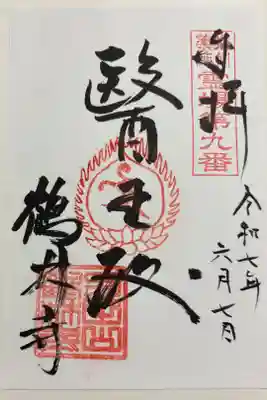 奉拝
霊場第九番
醫王殿
令和七年
六月七日
鶴林寺